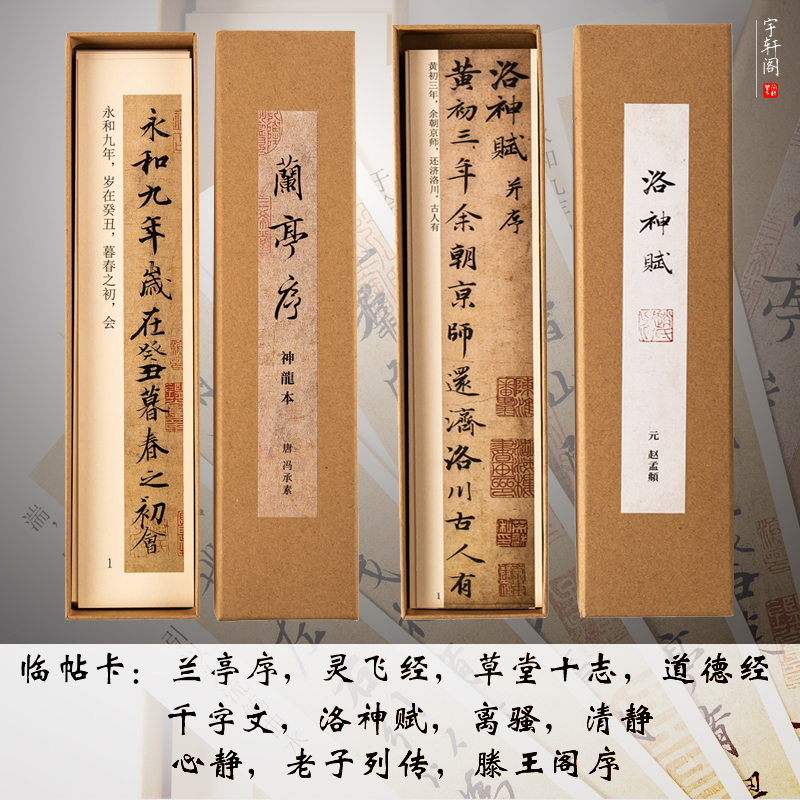 宇轩阁
永和九年歲在癸丑暮春之初會
永和九年，岁在癸丑，暮春之初，会
1
蘭亭序
神龍本
唐 冯承素
洛神賦 并序
黄初三年余朝京師還濟洛川古人有
黄初三年，余朝京师，还济洛川。古人有
1
洛神賦
元 赵孟頫
临帖卡：兰亭序，灵飞经，草堂十志，道德经
千字文，洛神赋，离骚，清静
心静，老子列传，滕王阁序